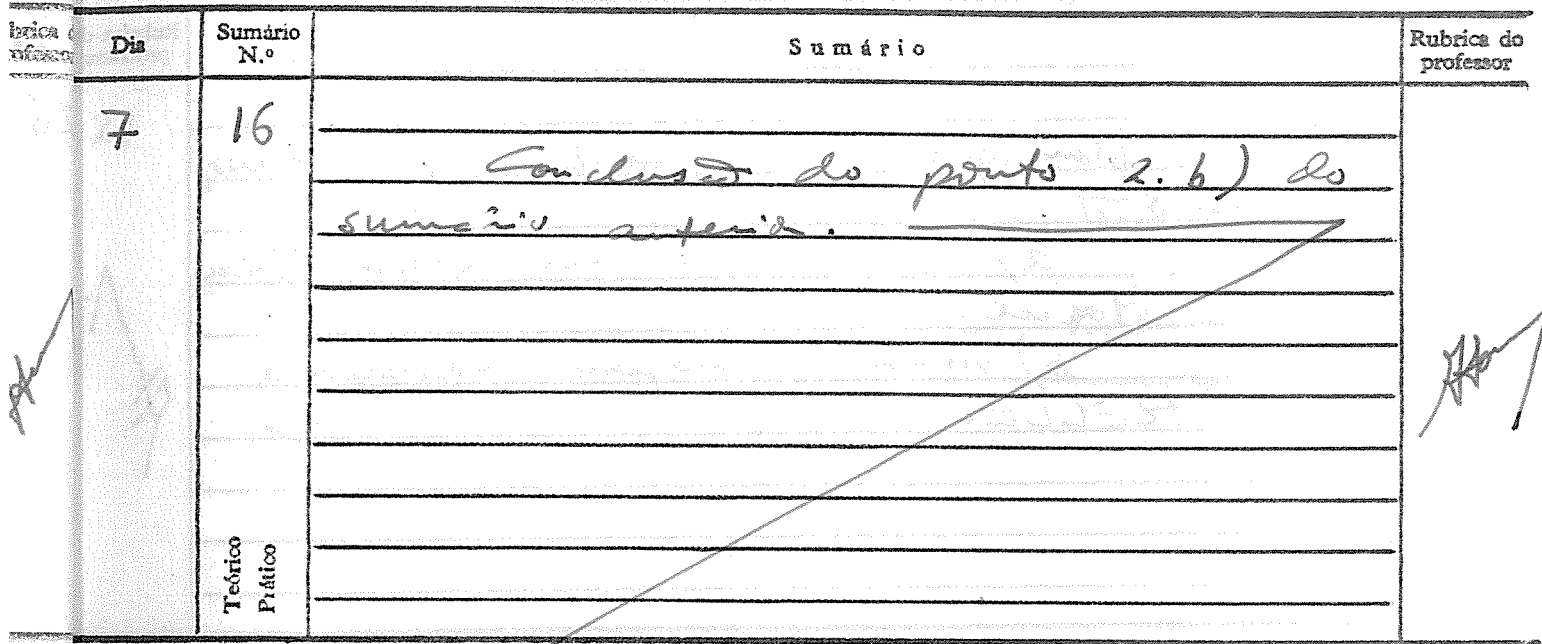 Dia
Sumário N.º
Sumário
Rubrica do professor
7
16
Conclusão do ponto 2. b) do
sumário anterior.
Teórico
Prático